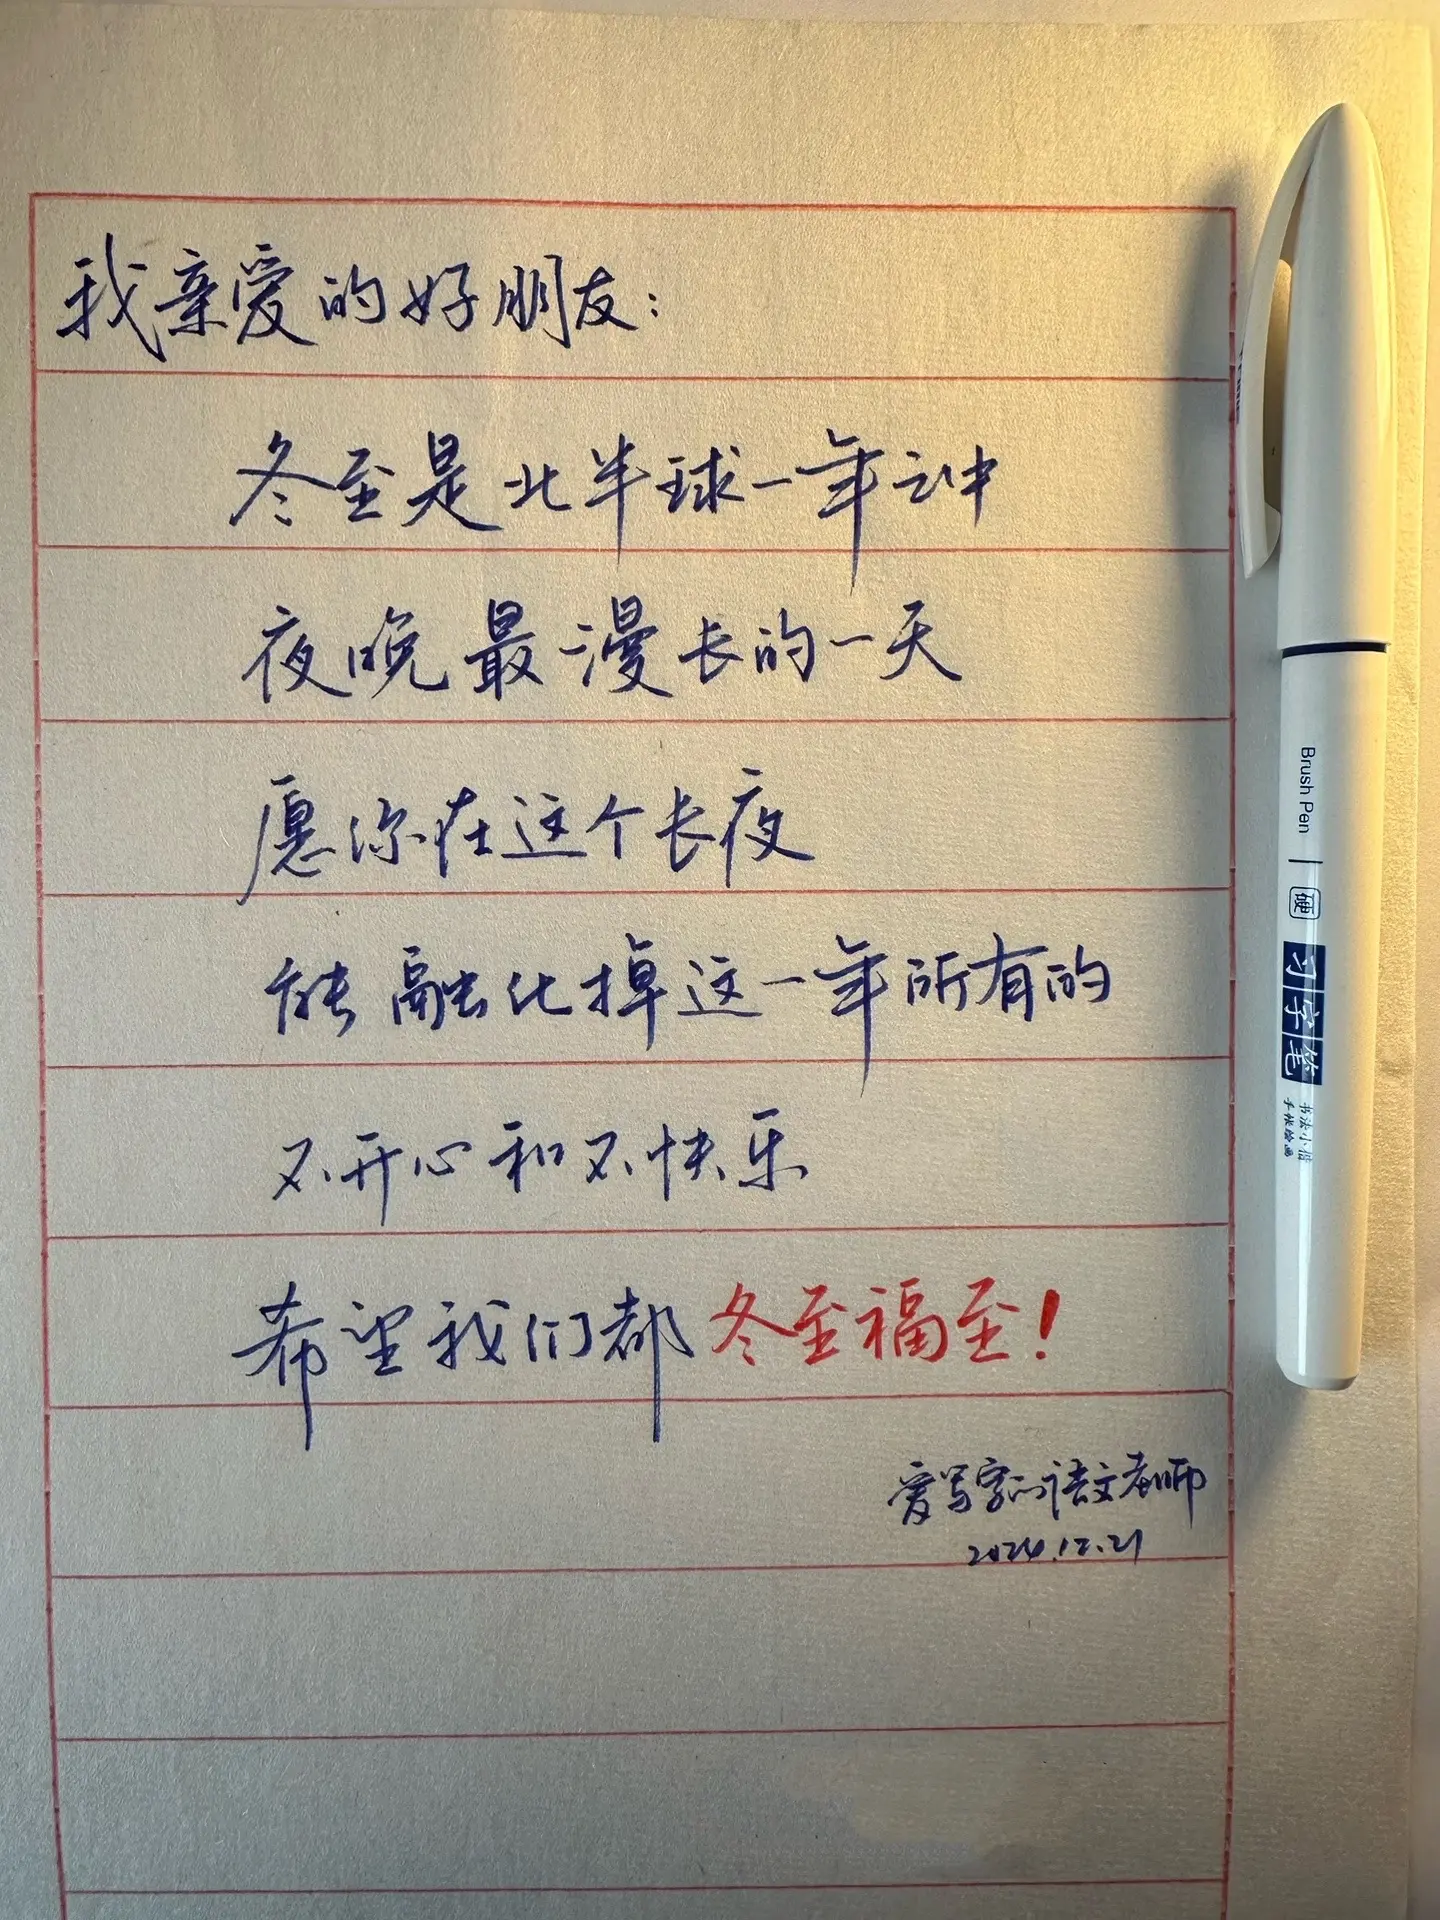 我亲爱的好朋友：
冬至是北半球一年之中
夜晚最漫长的一天
愿你在这个长夜
能融化掉这一年所有的
不开心和不快乐
希望我们都冬至福至！
爱写字的语文老师
2024.12.21
Brush Pen
硬
习字笔
书法小楷
手帐绘画